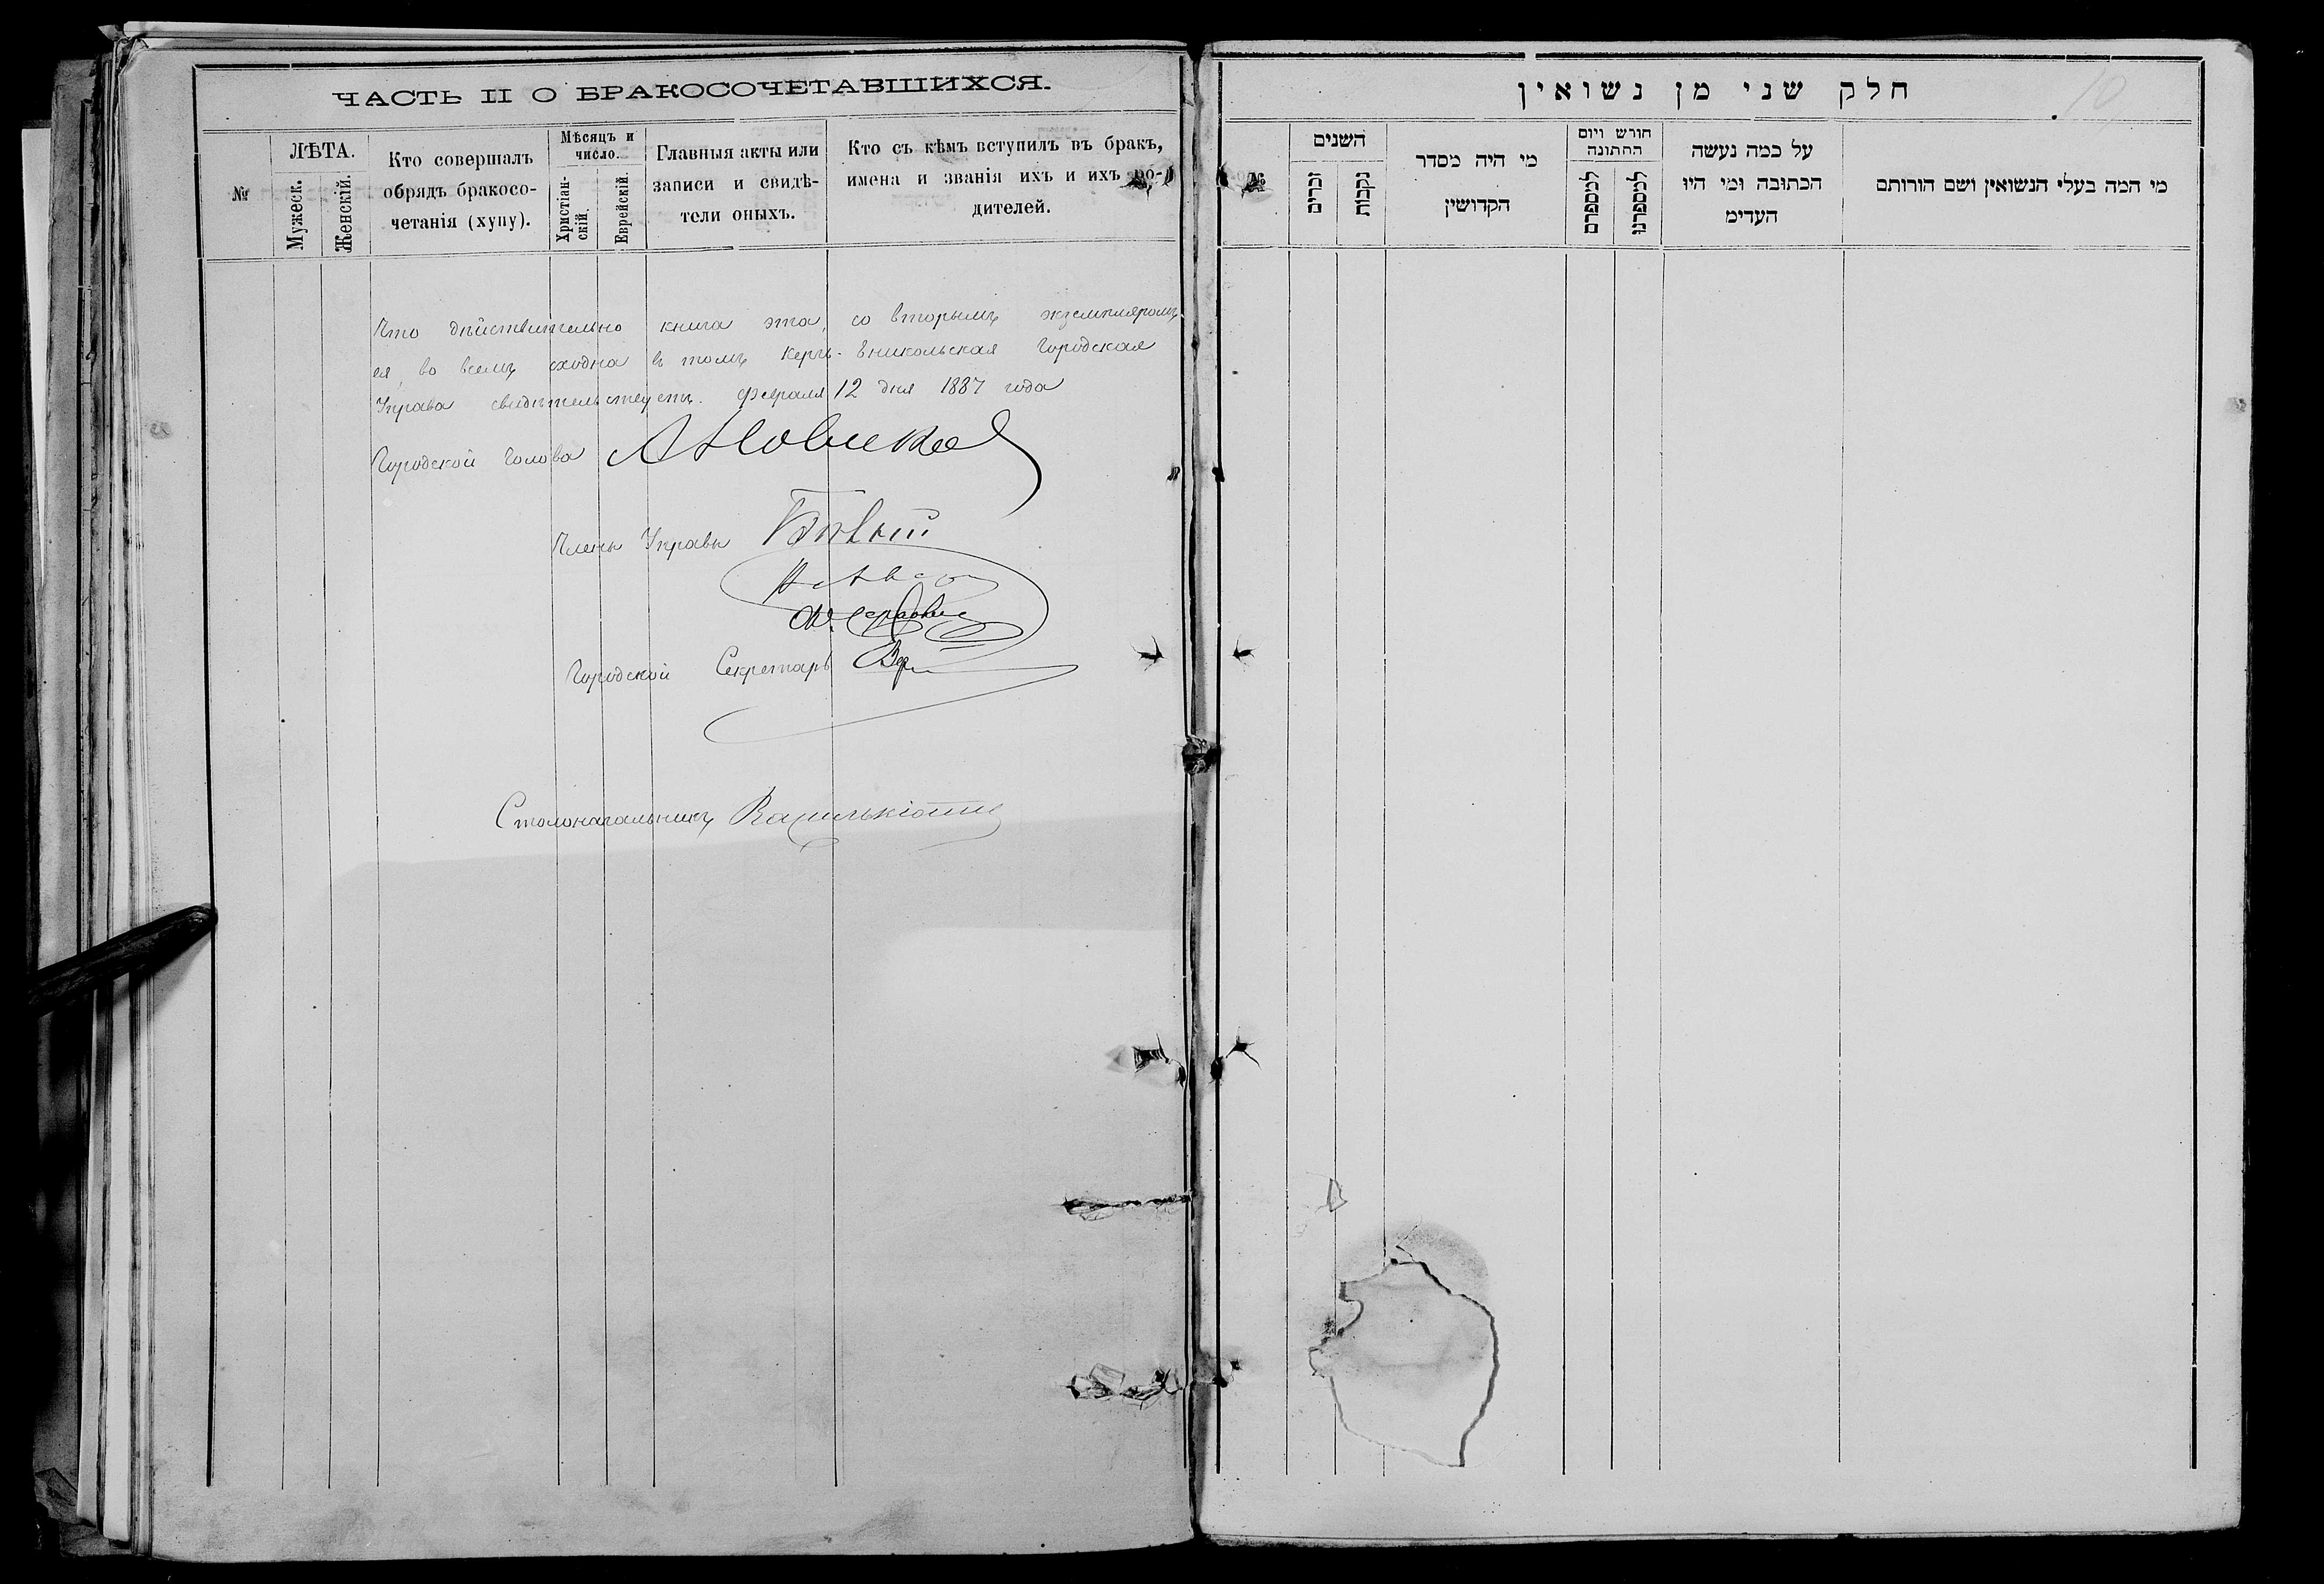 ЧАСТЬ II О БРАКОСОЧЕТАВШИХСЯ.
№
ЛѢТА.
Мужеск.
Женскій.
Кто совершалъ
обрядъ бракосо-
четанія (хупу).
Мѣсяцъ и
число.
Христіан-
скій.
Еврейскій.
Главныя акты или
записи и свидѣ-
тели оныхъ.
Кто съ кѣмъ вступилъ въ бракъ,
имена и званія ихъ и ихъ ро-
дителей.
Что дѣйствительно книга эта, со вторымъ экземпляромъ
ея, во всемъ сходна въ томъ Керчь-Еникольская Городская
Управа свидѣтельствуетъ. Февраля 12 дня 1887 года
Городской Голова А Новиков
Члены Управы
Городской Секретарь
Столоначальникъ
חלק שני מן נשואין
10
№
השנים
זכרים
נקבות
מי היה מסדר
הקדושין
חורש ויום
החתונה
למספרם
למספרנו
על כמה נעשה
הכתובה ומי היו
העדימ
מי המה בעלי הנשואין ושם הורותם